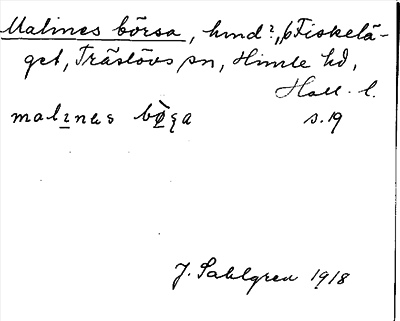 Malines börsa, hmd?, på Fiskelä-
get, Träslövs sn, Himle hd,
Hall. l.
malɪnəs bøʂa s. 19
J. Sahlgren 1918